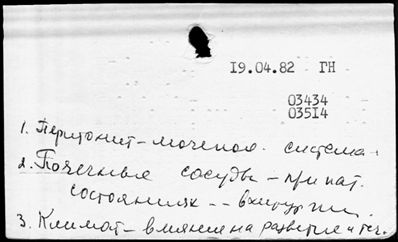 19.04.82 ГН
03434
03514
1. Перитонит – мочепол. система.
2. Почечные сосуды – при пат.
состояниях --
3. Климат – влияние на развитие и теч.